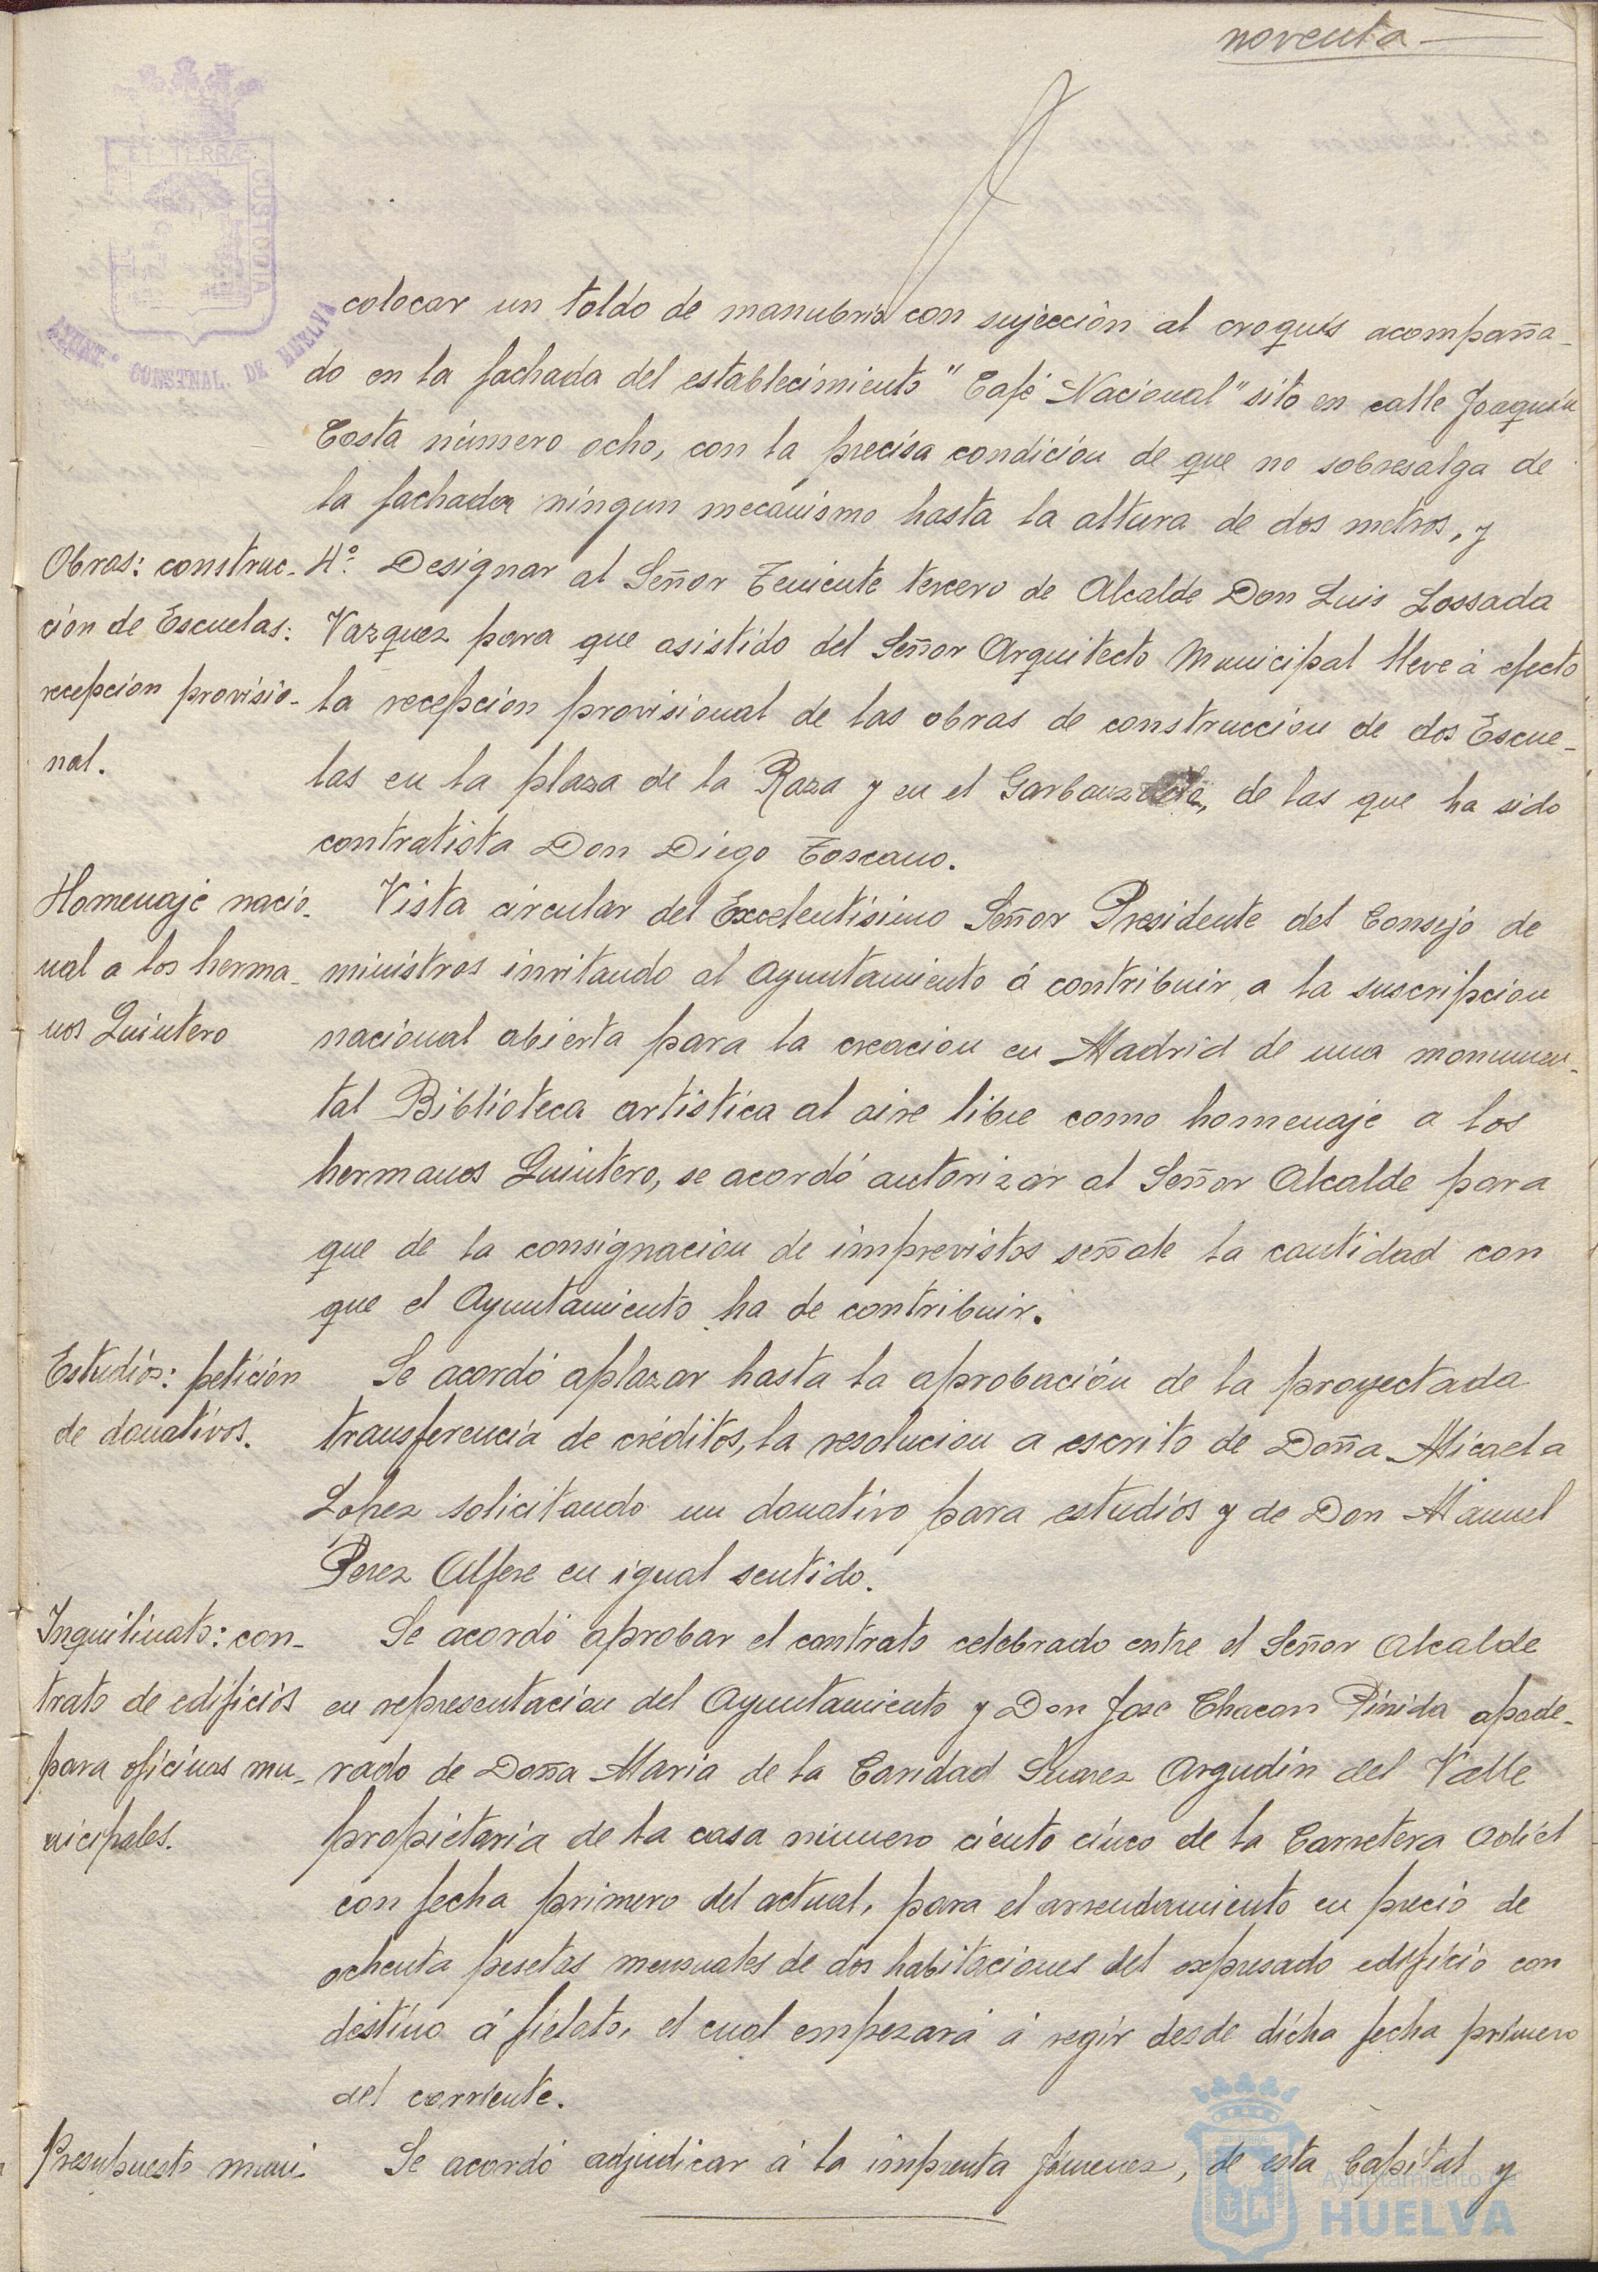 noventa
ET TERRÆ
CUSTODIA
AYUNT.º CONSTNAL. DE HUELVA
colocar un toldo de manubrio con sujección al croquis acompaña-
do en la fachada del establecimiento "Café Nacional" sito en calle Joaquín
Costa número ocho, con la precisa condición de que no sobresalga de
la fachada ningun mecanismo hasta la altura de dos metros, y
Obras: construc-
ción de Escuelas:
recepción provisio-
nal.
4º. Designar al Señor Teniente tercero de Alcalde Don Luis Lossada
Vazquez para que asistido del Señor Arquitecto Municipal lleve á efecto
la recepción provisional de las obras de construcción de dos Escue-
las en la plaza de la Raza y en el de las que ha sido
contratista Don Diego Toscano.
Homenaje nacio-
nal a los herma-
nos Quintero
Vista circular del Excelentísimo Señor Presidente del Consejo de
ministros invitando al Ayuntamiento á contribuir a la suscripción
nacional abierta para la creación en Madrid de una monumen-
tal Biblioteca artística al aire libre como homenaje a los
hermanos Quintero, se acordó autorizar al Señor Alcalde para
que de la consignación de imprevistos señale la cantidad con
que el Ayuntamiento ha de contribuir.
Estudios: petición
de donativos.
Se acordó aplazar hasta la aprobación de la proyectada
transferencia de créditos, la resolución a escrito de Doña Micaela
Lopez solicitando un donativo para estudios y de Don Manuel
Perez Alfere en igual sentido.
Inquilinato: con-
trato de edificios
para oficinas mu-
nicipales.
Se acordó aprobar el contrato celebrado entre el Señor Alcalde
en representación del Ayuntamiento y Don José Chacon apode-
rado de Doña María de la Caridad Suarez Argudín del Valle
propietaria de la casa número ciento cinco de la Carretera Odiel
con fecha primero del actual, para el arrendamiento en precio de
ochenta pesetas mensuales de dos habitaciones del expresado edificio con
destino á fielato, el cual empezará á regir desde dicha fecha primero
del corriente.
Presupuesto muni-
Se acordó adjudicar á la imprenta Jimenez, de esta Capital y
Ayuntamiento de
HUELVA